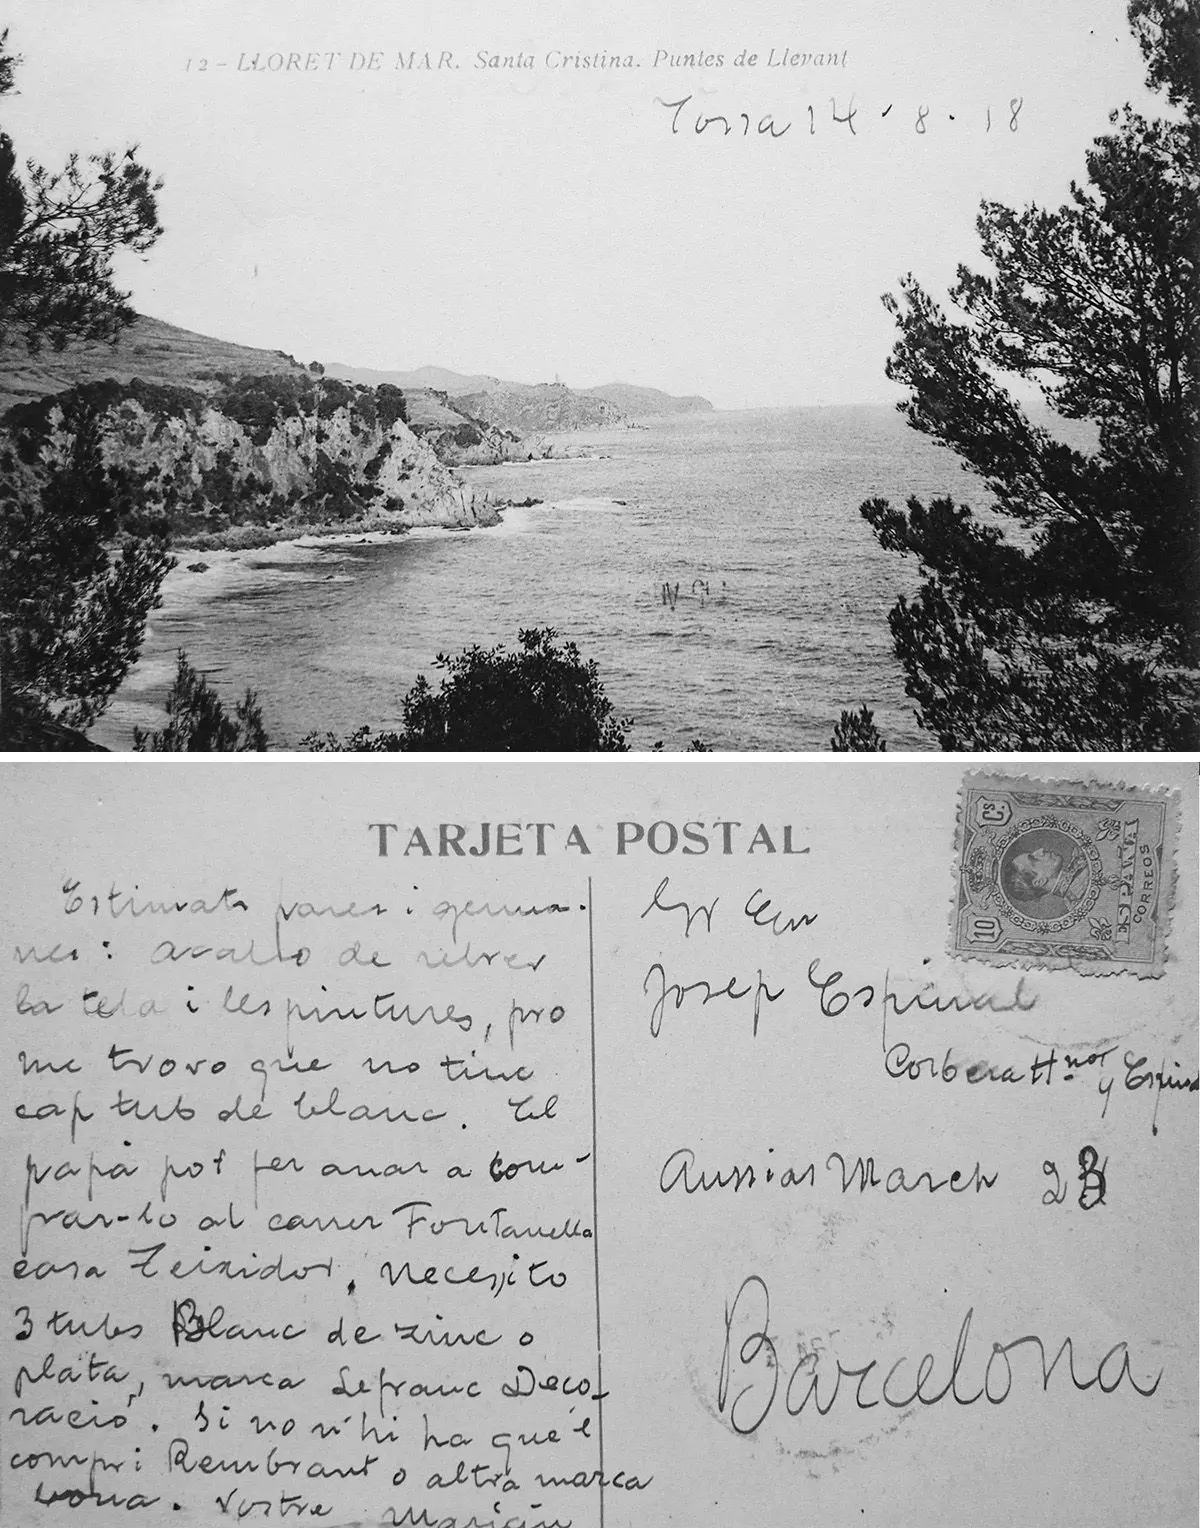 12 - LLORET DE MAR. Santa Cristina. Puntes de Llevant
Tossa 14 · 8 · 18
TARJETA POSTAL
Estimats pares i germa-
nes: Acabo de rebrer
la tela i les pintures, pro
me trovo que no tinc
cap tub de blanc. El
papà pot fer anar a com-
prar-lo al carrer Fontanella
casa Teixidor. Necessito
3 tubs Blanc de zinc o
plata, marca Lefranc Deco-
ració. Si no n'hi ha que'l
compri Rembrant o altra marca
bona. Vostre Marián
10 Cs.
ESPAÑA
CORREOS
Josep Espinal
Corbera Hnos y Espina
Aussias March 23
Barcelona